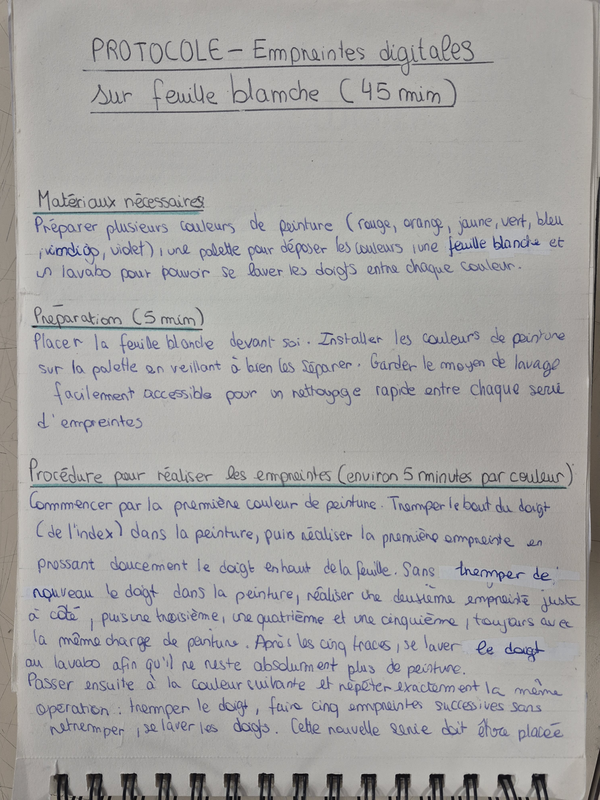 PROTOCOLE - Empreintes digitales
sur feuille blanche (45 min)
Matériaux nécessaires
Préparer plusieurs couleurs de peinture (rouge, orange, jaune, vert, bleu
, indigo, violet), une palette pour déposer les couleurs, une feuille blanche et
un lavabo pour pouvoir se laver les doigts entre chaque couleur.
Préparation (5 min)
Placer la feuille blanche devant soi. Installer les couleurs de peinture
sur la palette en veillant à bien les séparer. Garder le moyen de lavage
facilement accessible pour un nettoyage rapide entre chaque serie
d'empreintes
Procédure pour réaliser les empreintes (environ 5 minutes par couleur)
Commencer par la première couleur de peinture. Tremper le bout du doigt
(de l'index) dans la peinture, puis réaliser la première empreinte en
pressant doucement le doigt en haut de la feuille. Sans tremper de
nouveau le doigt dans la peinture, réaliser une deuxième empreinte juste
à côté, puis une troisième, une quatrième et une cinquième, toujours avec
la même charge de peinture. Après les cinq traces, se laver le doigt
au lavabo afin qu'il ne reste absolument plus de peinture.
Passer ensuite à la couleur suivante et répéter exactement la même
opération : tremper le doigt, faire cinq empreintes successives sans
retremper, se laver les doigts. Cette nouvelle serie doit être placée